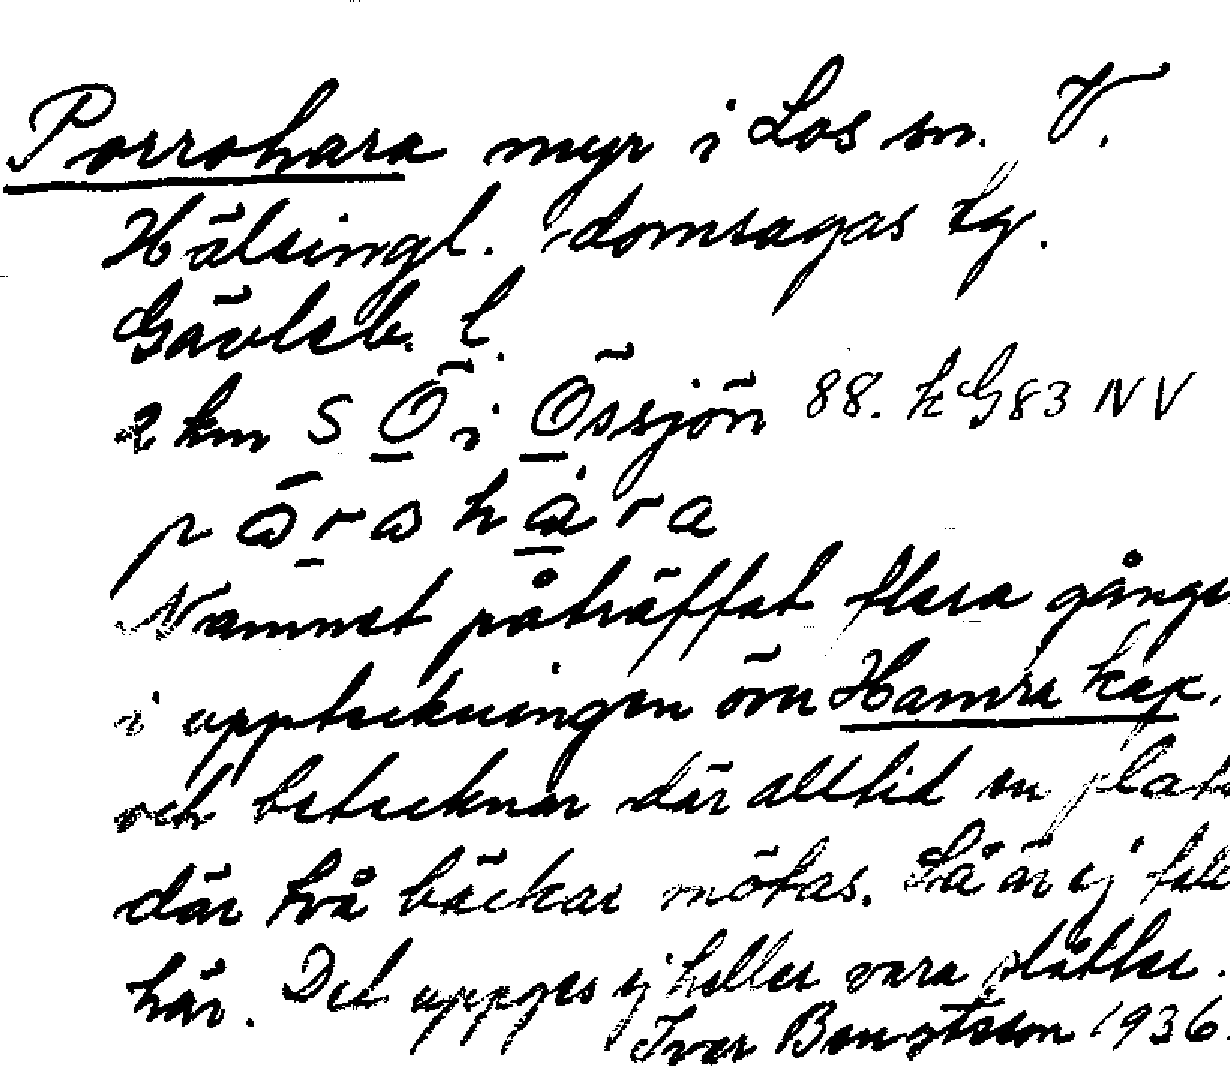 Porrohara myr i Los sn. V.
Hälsingl. domsagas tg.
Gävleb. l.
2 km S Ö i Össjön 88. k G83 NV
Namnet påträffat flera gånger
i uppteckningen över Hamra kap.
och betecknar där alltid en plats
där två bäckar mötas. Så är ej
här. Det uppges ej heller vara slåtter.
Ivar Bengtsson 1936.